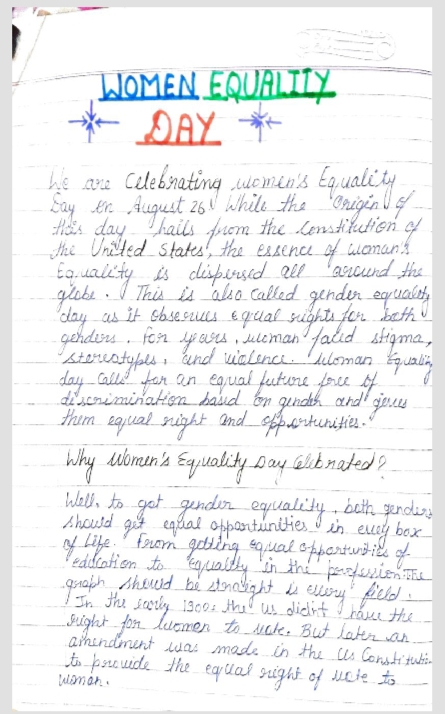 WOMEN EQUALITY
DAY
We are Celebrating women's Equality
Day on August 26. While the Origin of
this day hails from the Constitution of
the United States, the essence of woman's
Equality is dispersed all around the
globe. This is also called gender equality
day as it observes equal rights for both
genders. For years, woman faced stigma,
stereotypes, and violence. Woman Equality
day calls for an equal future free of
descrimination based on gender and gives
them equal right and opportunities.
Why Women's Equality Day Celebrated?
Well, to get gender equality, both genders
should get equal opportunities in every box
of life. From getting equal opportunities of
education to equality in the profession. The
graph should be straight is every field.
In the early 1300s the us didn't have the
right for women to vote. But later an
amendment was made in the Us Constitution
to provide the equal right of vote to
woman.